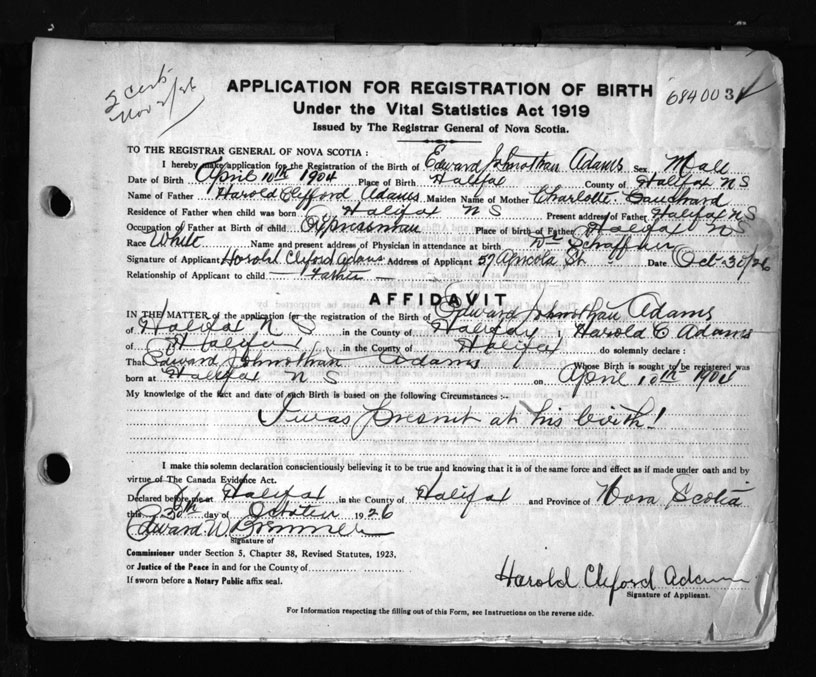 2 Certs
Nov 2/26
684003
APPLICATION FOR REGISTRATION OF BIRTH
Under the Vital Statistics Act 1919
Issued by The Registrar General of Nova Scotia.
TO THE REGISTRAR GENERAL OF NOVA SCOTIA :
I hereby make application for the Registration of the Birth of Edward Johnothan Adams Sex Male
Date of Birth April 10th 1904 Place of Birth Halifax County of Halifax N S
Name of Father Harold Clifford Adams Maiden Name of Mother Charlotte
Residence of Father when child was born Halifax N S Present address of Father Halifax N S
Occupation of Father at Birth of child Expressman Place of birth of Father Halifax N S
Race White Name and present address of Physician in attendance at birth
Signature of Applicant Harold Cliford Adams Address of Applicant 57 Agricola St. Date Oct 30/26
Relationship of Applicant to child — Father —
AFFIDAVIT
IN THE MATTER of the application for the registration of the Birth of Edward Johnothan Adams
of Halifax N S in the County of Halifax I Harold C Adams
of Halifax in the County of Halifax do solemnly declare :
That Edward Johnothan Adams Whose Birth is sought to be registered was
born at Halifax N S on April 10th 1904
My knowledge of the fact and date of such Birth is based on the following Circumstances :-
I was present at his birth!
I make this solemn declaration conscientiously believing it to be true and knowing that it is of the same force and effect as if made under oath and by
virtue of The Canada Evidence Act.
Declared before me at Halifax in the County of Halifax and Province of Nova Scotia
this 30th day of October 1926
Edward W
Signature of
Commissioner under Section 5, Chapter 38, Revised Statutes, 1923,
or Justice of the Peace in and for the County of
If sworn before a Notary Public affix seal.
Harold Cliford Adams
Signature of Applicant.
For Information respecting the filling out of this Form, see Instructions on the reverse side.